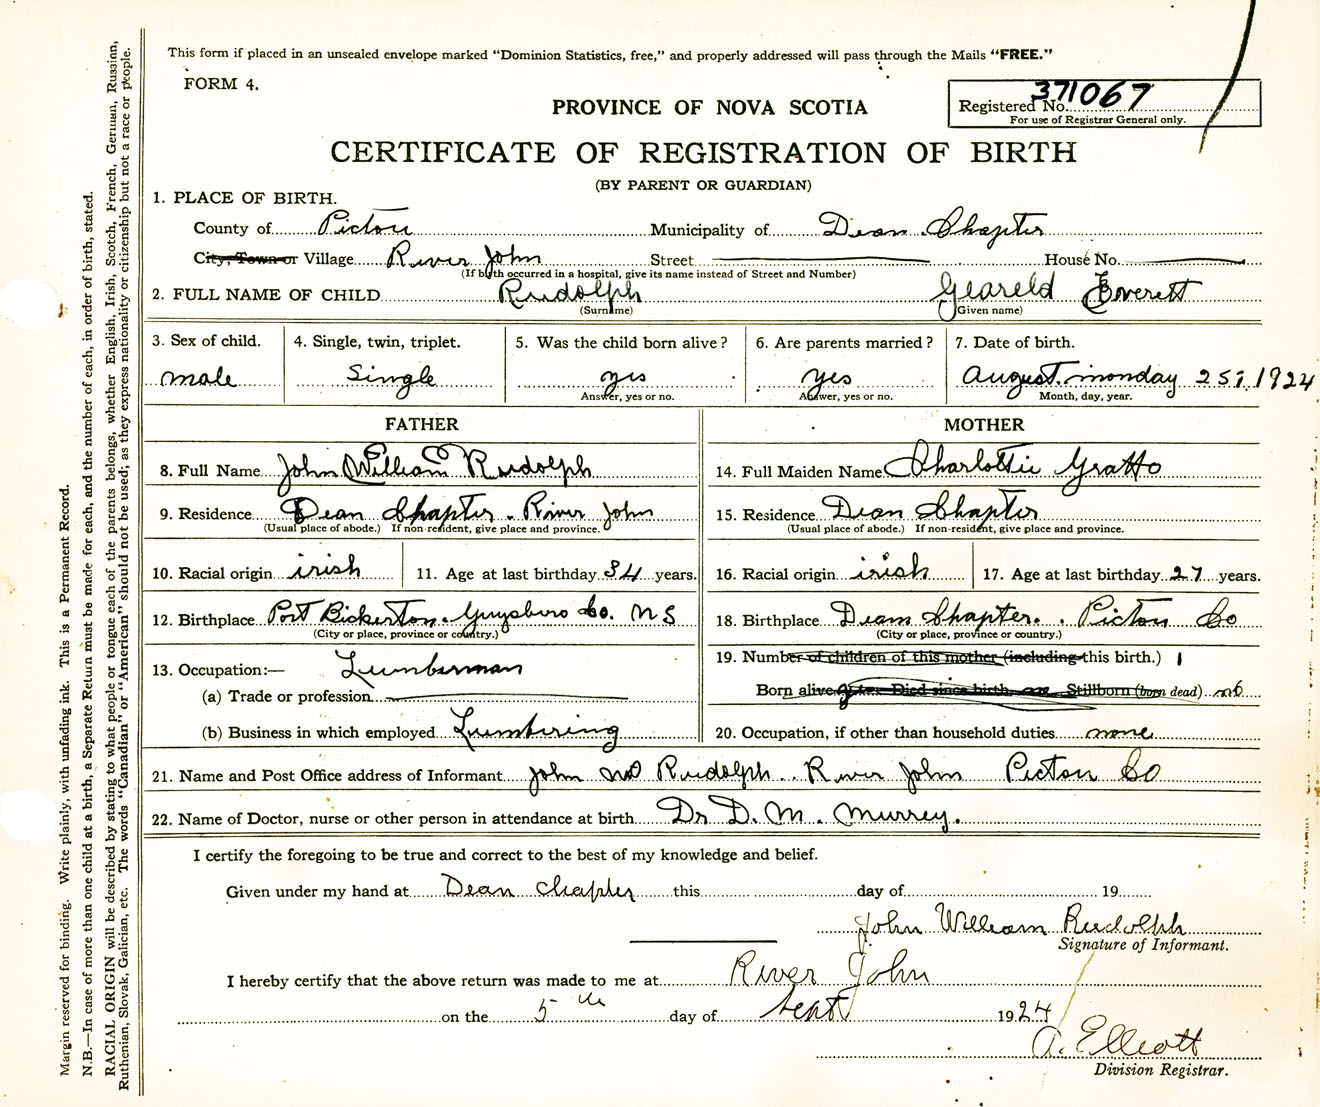 This form if placed in an unsealed envelope marked "Dominion Statistics, free," and properly addressed will pass through the Mails "FREE."
FORM 4.
Registered No. 371067
For use of Registrar General only.
PROVINCE OF NOVA SCOTIA
CERTIFICATE OF REGISTRATION OF BIRTH
(BY PARENT OR GUARDIAN)
1. PLACE OF BIRTH.
County of Pictou Municipality of Dean Chapter
City, Town or Village River John Street House No.
(If birth occurred in a hospital, give its name instead of Street and Number)
2. FULL NAME OF CHILD Rudolph Geareld Everett
(Surname) (Given name)
3. Sex of child. 4. Single, twin, triplet. 5. Was the child born alive? 6. Are parents married? 7. Date of birth.
male Single yes yes August monday 25 1924
Answer, yes or no. Answer, yes or no. Month, day, year.
FATHER MOTHER
8. Full Name John William Rudolph 14. Full Maiden Name Charlottie Gratto
9. Residence Dean Chapter. River John 15. Residence Dean Chapter
(Usual place of abode.) If non-resident, give place and province. (Usual place of abode.) If non-resident, give place and province.
10. Racial origin irish 11. Age at last birthday 34 years. 16. Racial origin irish 17. Age at last birthday 27 years.
12. Birthplace Port Bickerton. Guysboro Co. N S 18. Birthplace Deam Chapter. Picton Co
(City or place, province or country.) (City or place, province or country.)
13. Occupation:— Lumberman 19. Number of children of this mother (including this birth.) 1
(a) Trade or profession Born alive Died since birth Stillborn (born dead) no
(b) Business in which employed Lumbiring 20. Occupation, if other than household duties none
21. Name and Post Office address of Informant John Rudolph River John Picton Co
22. Name of Doctor, nurse or other person in attendance at birth Dr D. M. Murrey.
I certify the foregoing to be true and correct to the best of my knowledge and belief.
Given under my hand at Dean chapter this day of 19
John William Rudolph
Signature of Informant.
I hereby certify that the above return was made to me at River John
on the 5th day of Sept 1924
A. Elliott
Division Registrar.
Margin reserved for binding. Write plainly, with unfading ink. This is a Permanent Record.
N.B.—In case of more than one child at a birth, a Separate Return must be made for each, and the number of each, in order of birth, stated.
RACIAL ORIGIN will be described by stating to what people or tongue each of the parents belongs, whether English, Irish, Scotch, French, German, Russian,
Ruthenian, Slovak, Galician, etc. The words "Canadian" or "American" should not be used; as they express nationality or citizenship but not a race or people.